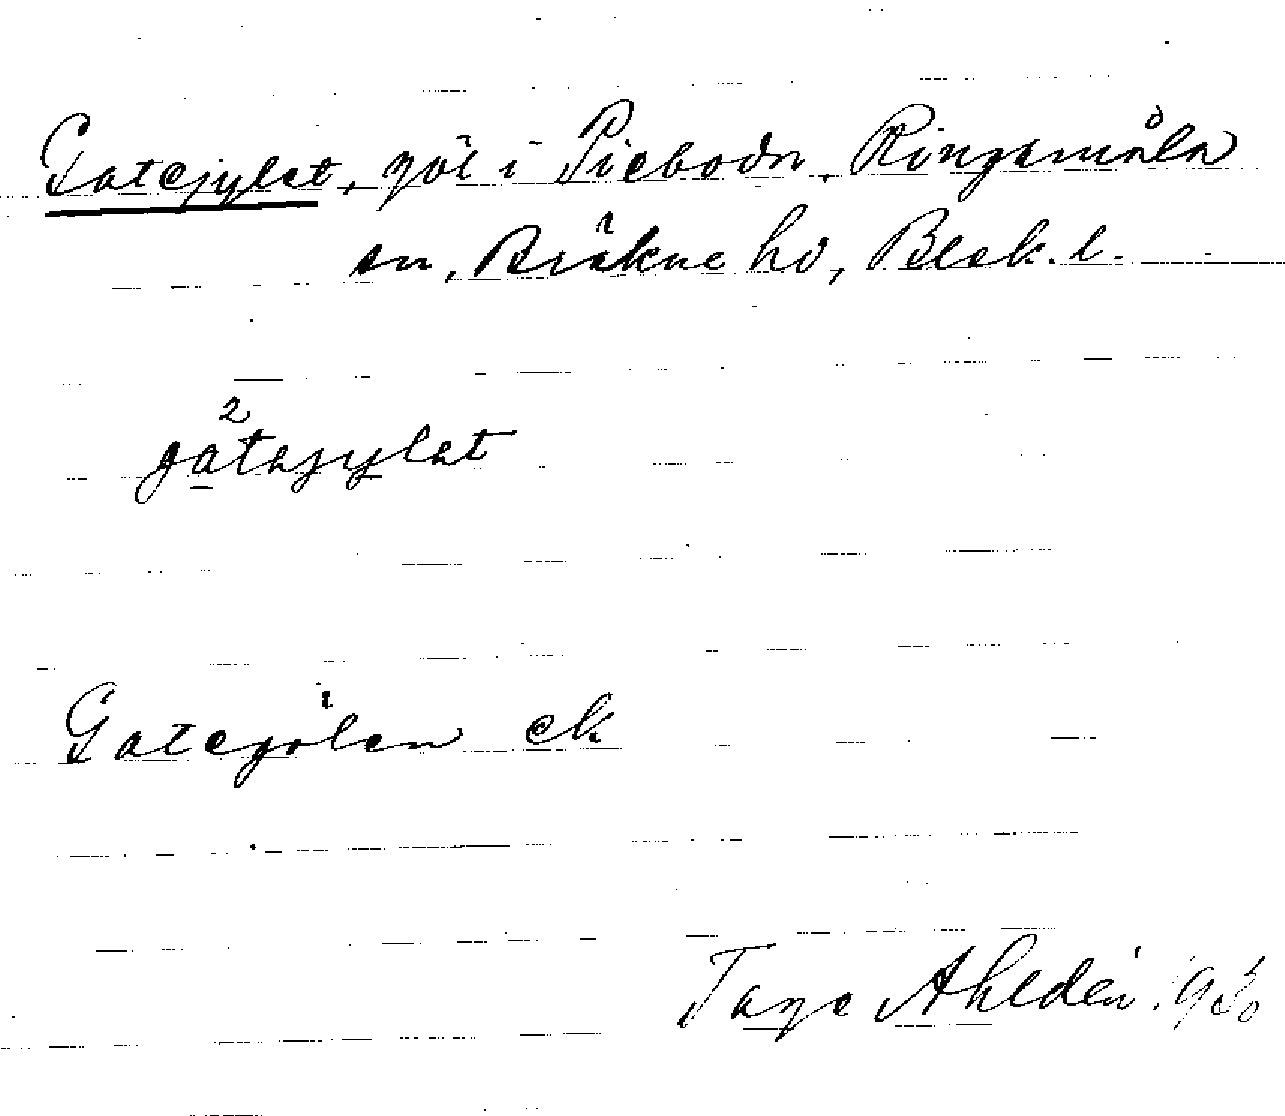 Gatejylet, göl i Pieboda, Ringamåla
sn, Bräkne hd, Blek. l.
2
gatajylat
Gategölen ek
Tage Ahldén 1930